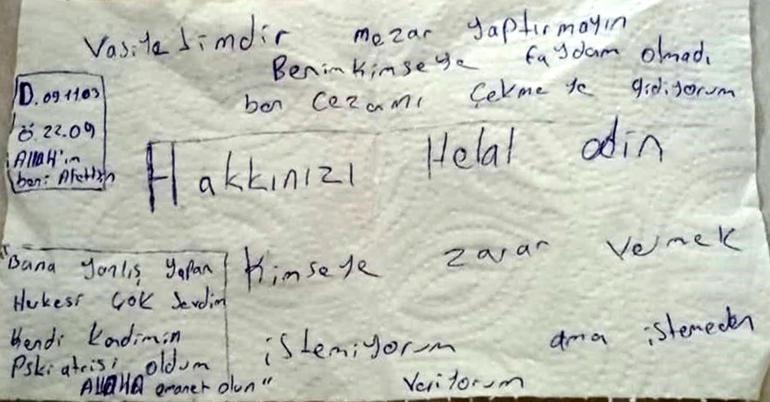 Vasiyetimdir mezar yaptırmayın
Benim kimseye faydam olmadı
ben cezamı çekmeye gidiyorum
D. 09.11.03
Ö. 22.09
Allah'ın
beni Afetsin
Hakkınızı Helal edin
Kimseye zarar vermek
istemiyorum ama istemeden
veriyorum
"Bana yanlış yapan
Herkesi çok sevdim
Kendi kendimin
Pskiatrisi oldum
AllAHA emanet olun"